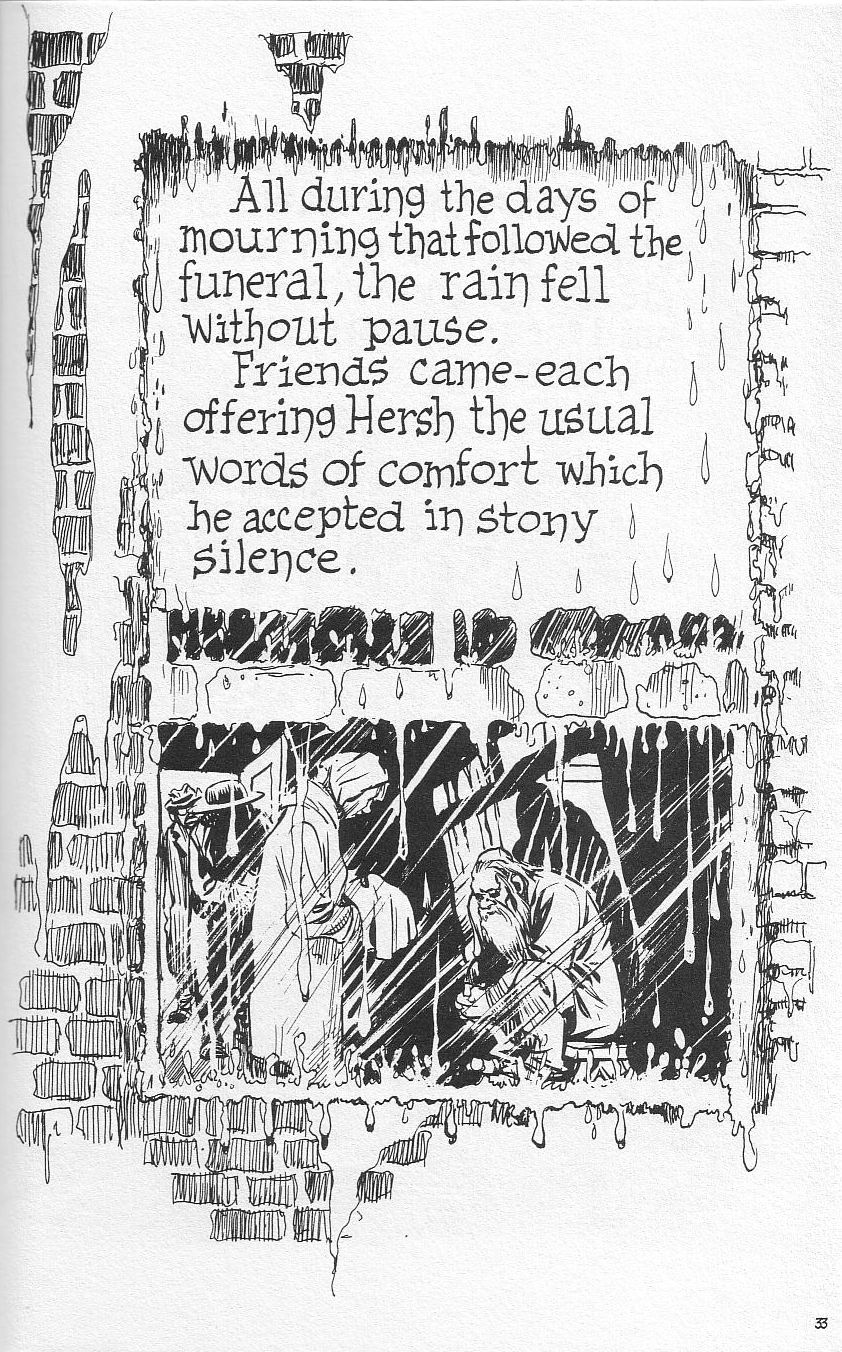 All during the days of
mourning that followed the
funeral, the rain fell
without pause.
Friends came-each
offering Hersh the usual
words of comfort which
he accepted in stony
silence.
33